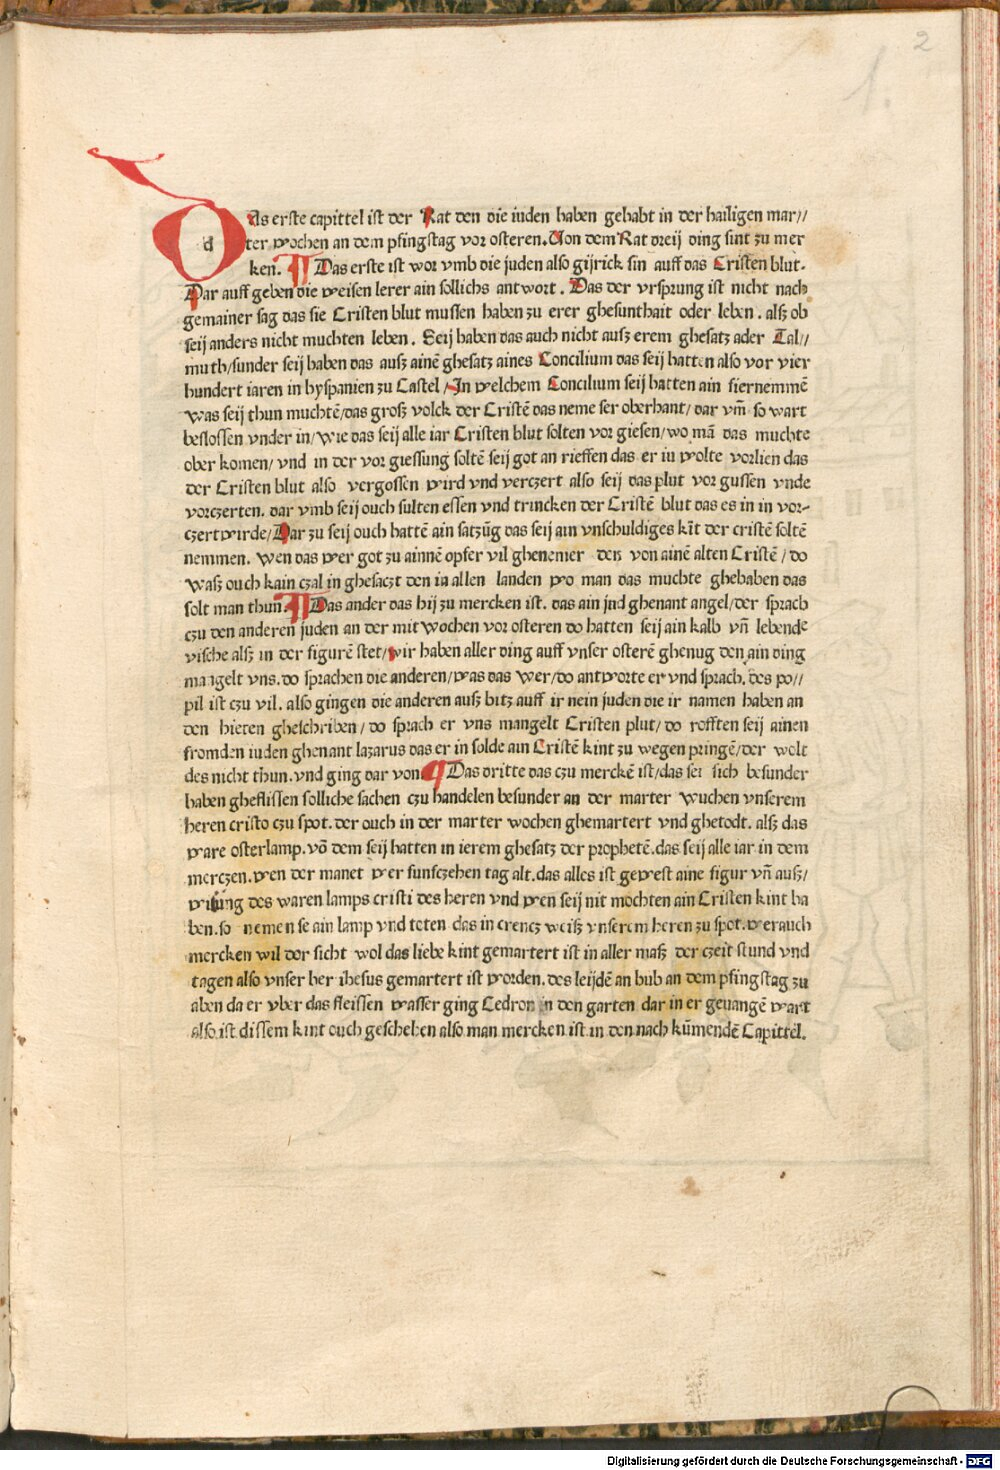 2
1.
Das erste capittel ist der Rat den die iuden haben gehabt in der hailigen mar//
ter wochen an dem pfingstag vor osteren. Von dem Rat dreij ding sint zu mer
ken. ¶ Das erste ist wor vmb die juden also gijrick sin auff das Cristen blut.
Dar auff geben die weisen lerer ain sollichs antwort. Das der vrsprung ist nicht nach
gemainer sag das sie Cristen blut mussen haben zu erer ghesunthait oder leben. alß ob
seij anders nicht muchten leben. Seij haben das auch nicht außz erem ghesatz ader Tal//
muth/sunder seij haben das außz ainē ghesatz aines Concilium das seij hatten also vor vier
hundert iaren in hyspanien zu Castel/In welchem Concilium seij hatten ain fiernemmē
was seij thun muchtē/das groß volck der Cristē das neme ser oberhant/dar vm̄ so wart
beslossen vnder in/wie das seij alle iar Cristen blut solten vor giesen/wo mā das muchte
ober komen/vnd in der vor giessung soltē seij got an rieffen das er iu wolte vorlien das
der Cristen blut also vergossen wird vnd verczert also seij das plut vor gussen vnde
vorczerten. dar vmb seij ouch sulten essen vnd trincken der Cristē blut das es in in vor-
czert wirde/Dar zu seij ouch hattē ain satzūg das seij ain vnschuldiges kīt der cristē soltē
nemmen. wen das wer got zu ainnē opfer vil ghenemer den von ainē alten Cristē/do
waß ouch kain czal in ghesaczt den in allen landen wo man das muchte ghehaben das
solt man thun. ¶ Das ander das hij zu mercken ist. das ain jnd ghenant angel/der sprach
czu den anderen juden an der mitwochen vor osteren do hatten seij ain kalb vn̄ lebende
vische alß in der figurē stet/wir haben aller ding auff vnser osterē ghenug den ain ding
mangelt vns. do sprachen die anderen/was das wer/do antworte er vnd sprach. des po//
pil ist czu vil. also gingen die anderen auß bitz auff ir nein juden die ir namen haben an
den hieten gheschriben/do sprach er vns mangelt Cristen plut/do rofften seij ainen
fromden iuden ghenant lazarus das er in solde ain Cristē kint zu wegen pringē/der wolt
des nicht thun. vnd ging dar von ¶ Das dritte das czu merckē ist/das sei sich besunder
haben gheflissen solliche sachen czu handelen besunder an der marter wuchen vnserem
heren cristo czu spot. der ouch in der marter wochen ghemartert vnd ghetodt. alß das
ware osterlamp. vō dem seij hatten in ierem ghesatz der prophetē. das seij alle iar in dem
merczen. wen der manet wer funfczehen tag alt. das alles ist gewest aine figur vn̄ auß/
wisung des waren lamps cristi des heren vnd wen seij nit mochten ain Cristen kint ha
ben. so nemen se ain lamp vnd toten das in crencz weiß vnserem heren zu spot. wer auch
mercken wil der sicht wol das liebe kint gemartert ist in aller maß der czeit stund vnd
tagen also vnser her ihesus gemartert ist worden. des leijdē an hub an dem pfingstag zu
aben da er vber das fleissen wasser ging Cedron in den garten dar in er geuangē wart
also ist dissem kint ouch geschehen also man mercken ist in den nach kūmendē Capittel.
Digitalisierung gefördert durch die Deutsche Forschungsgemeinschaft - DFG